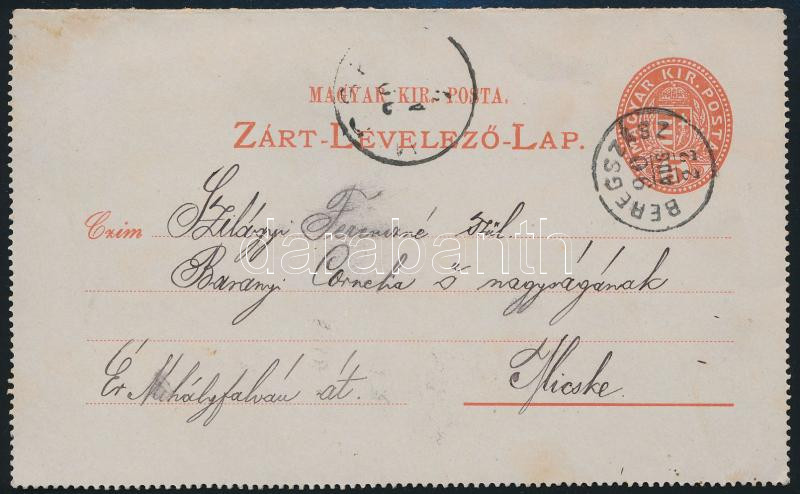 MAGYAR KIR. POSTA.
ZÁRT-LEVELEZŐ-LAP.
MAGYAR KIR. POSTA
5
BEREGSZÁSZ
90
AUG
22
Czim Szilágyi Ferenczné szül.
Barányi Cornelia ő nagyságának
Micske.
Ér Mihályfalván át.
darabanth